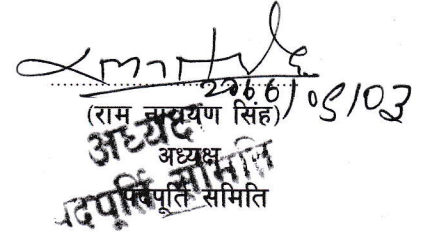 2076/09/03
(राम नारायण सिंह)
अध्यक्ष
पदपूर्ति समिति
अध्यक्ष
पदपूर्ति समिति